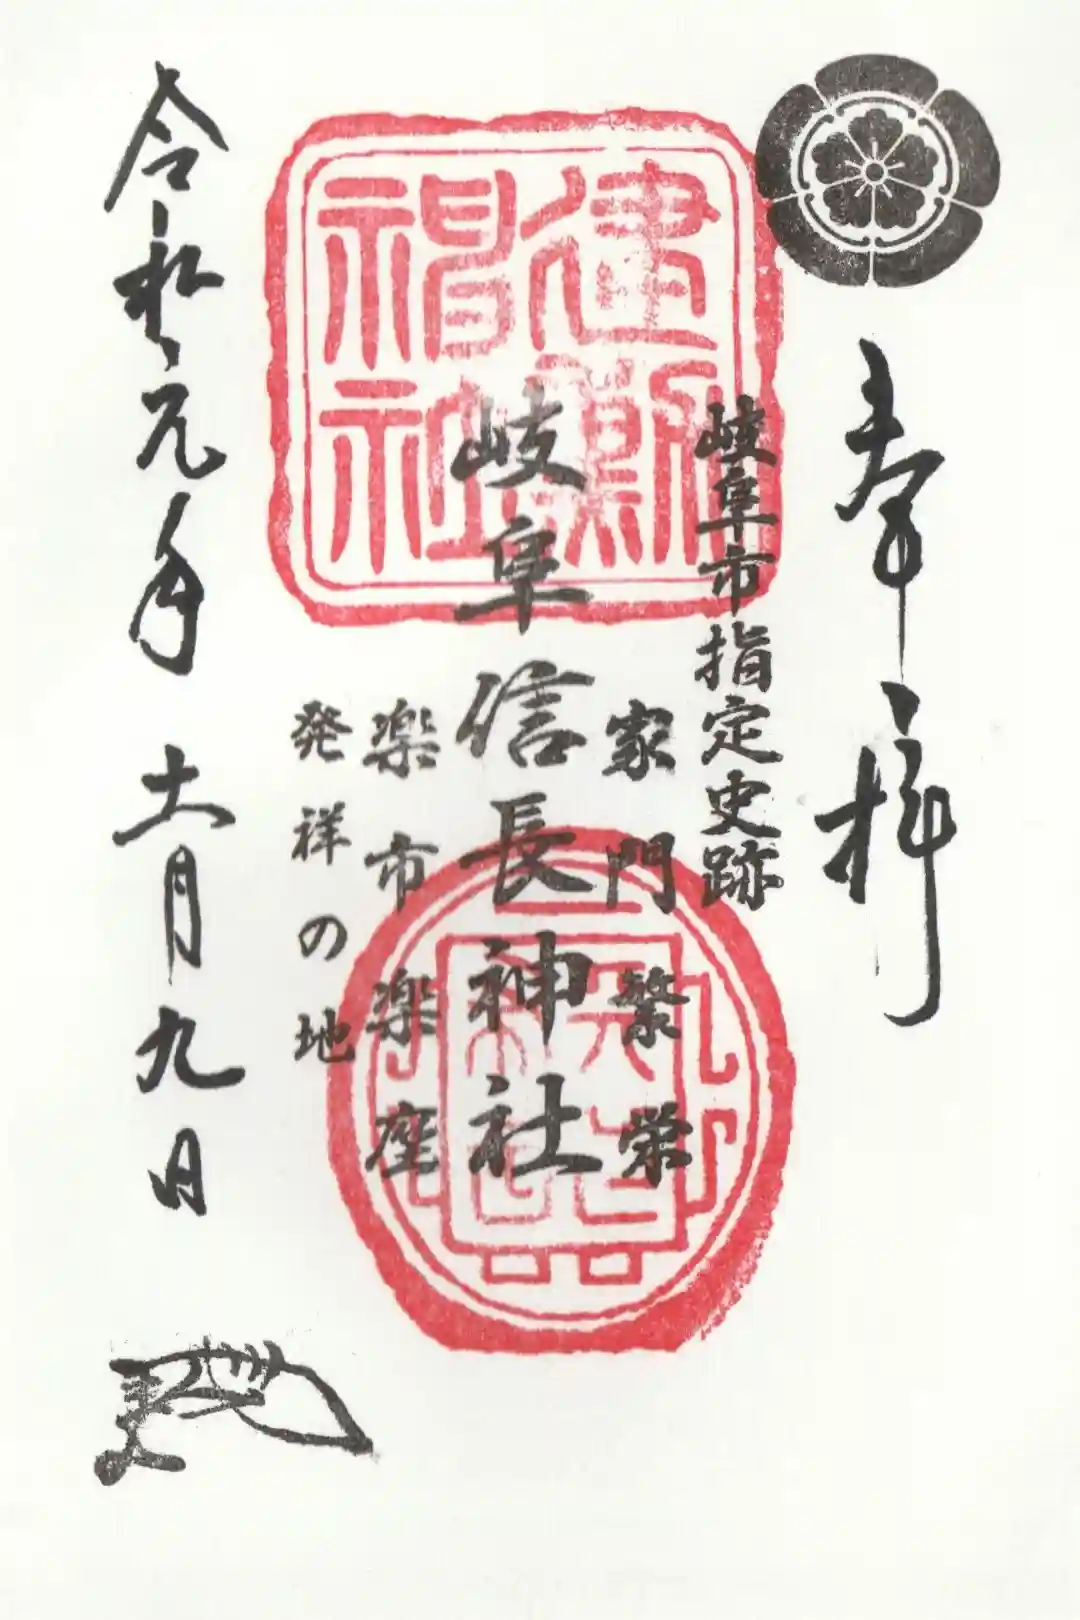 奉拝
岐阜市指定史跡
家門繁栄
岐阜信長神社
楽市楽座
発祥の地
令和元年 十一月九日
建勲
神社